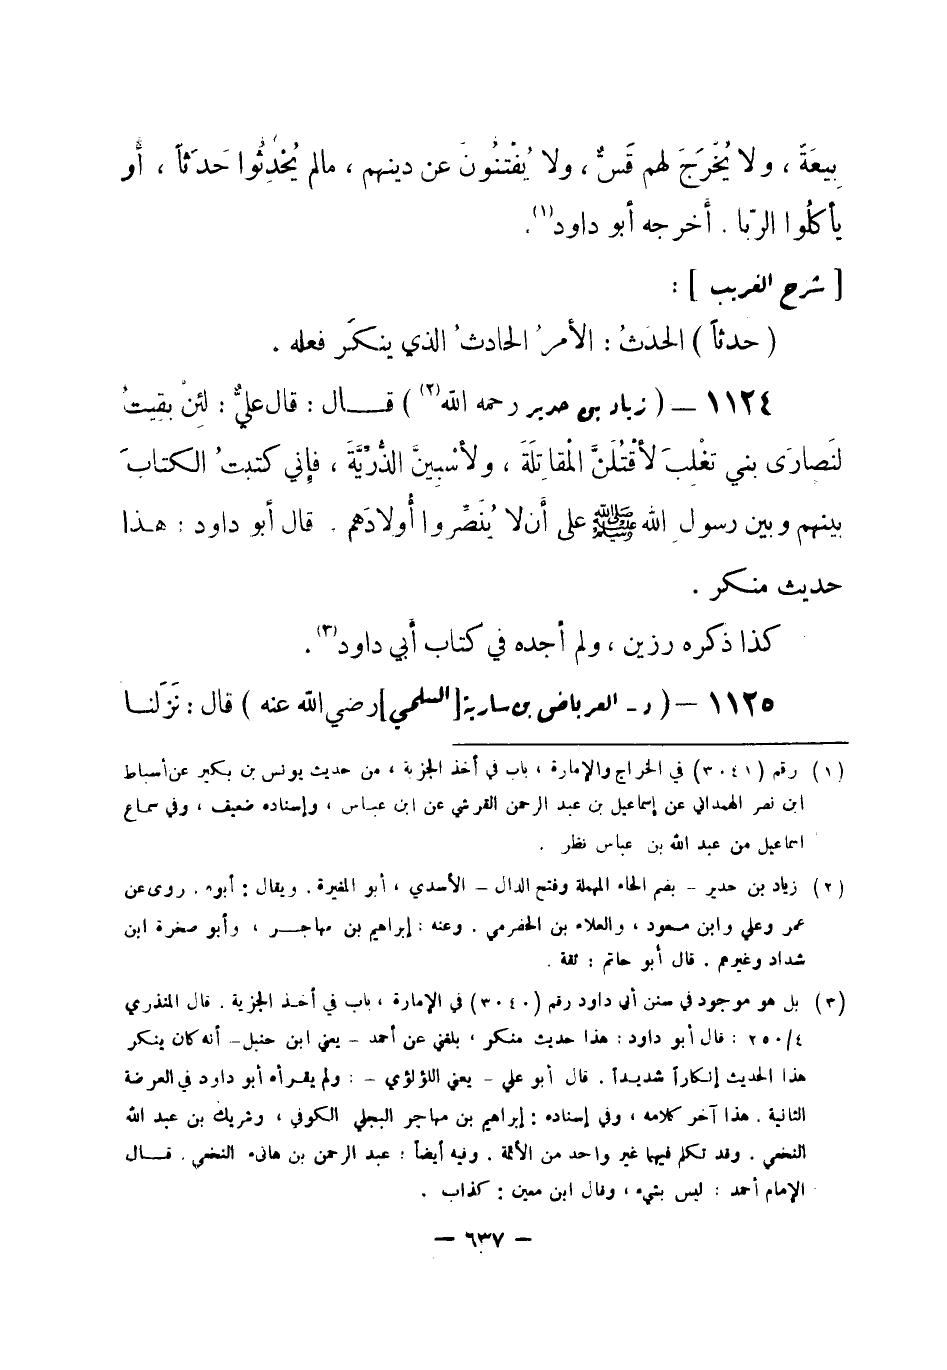 بِيعَةً ، ولا يُخْرَجَ لهم قَسٌّ ، ولا يُفْتَنُونَ عن دينهم ، مالم يُحْدِثُوا حَدَثاً ، أو
يأكلُوا الرِّبا . أخرجه أبو داود(١).
[ شرح الغريب ] :
( حدثاً ) الحَدَثُ : الأمرُ الحادثُ الذي ينكَر فعله .
١١٢٤ – ( زياد بن حدير رحمه الله(٢) ) قـــال : قال عليٌّ : لئِنْ بقيتُ
لنَصارَى بني تغْلِبَ لأقْتُلَنَّ المْقاتِلَةَ ، ولأسْبِيَنَّ الذُّرِّيَّةَ ، فإني كتبتُ الكتابَ
بينهم وبين رسولِ الله ﷺ على أن لا يُنَصِّروا أولادَهم . قال أبو داود : هـذا
حديث منكر .
كذا ذكره رزين ، ولم أجده في كتاب أبي داود(٣) .
١١٢٥ – ( د - العرباض بن سارية [السلمي] رضي الله عنه ) قال : نَزَلنـا
(١) رقم (٣٠٤١) في الخراج والإمارة ، باب في أخذ الجزية ، من حديث يونس بن بكير عن أسباط
ابن نصر الهمداني عن إسماعيل بن عبد الرحمن القرشي عن ابن عبـاس ، وإسناده ضعيف ، وفي سماع
اسماعيل من عبد الله بن عباس نظر .
(٢) زياد بن حدير – بضم الحاء المهملة وفتح الدال – الأسدي ، أبو المغيرة . ويقال : أبو . روى عن
عمر وعلي وابن مسعود ، والعلاء بن الحضرمي . وعنه : إبراهيم بن مهاجـر ، وأبو صخرة ابن
شداد وغيرهم . قال أبو حاتم : ثقة .
(٣) بل هو موجود في سنن أبي داود رقم (٣٠٤٠) في الإمارة ، باب في أخـذ الجزية . قال المنذري
٤/٢٥٠ : قال أبو داود : هذا حديث منكر ، بلغني عن أحمد – يعني ابن حنبل – أنه كان ينكر
هذا الحديث إنكاراً شديـداً . قال أبو علي – يعني اللؤلؤي – : ولم يقـرأه أبو داود في العرضة
الثانية . هذا آخر كلامه ، وفي إسناده : إبراهيم بن مهاجر البجلي الكوفي ، وشريك بن عبد الله
النخعي . وقد تكلم فيهما غير واحد من الأئمة . وفيه أيضاً : عبد الرحمن بن هانىء النخعي . قـــال
الإمام أحمد : ليس بشيء ، وقال ابن معين : كذاب .
– ٦٣٧ –